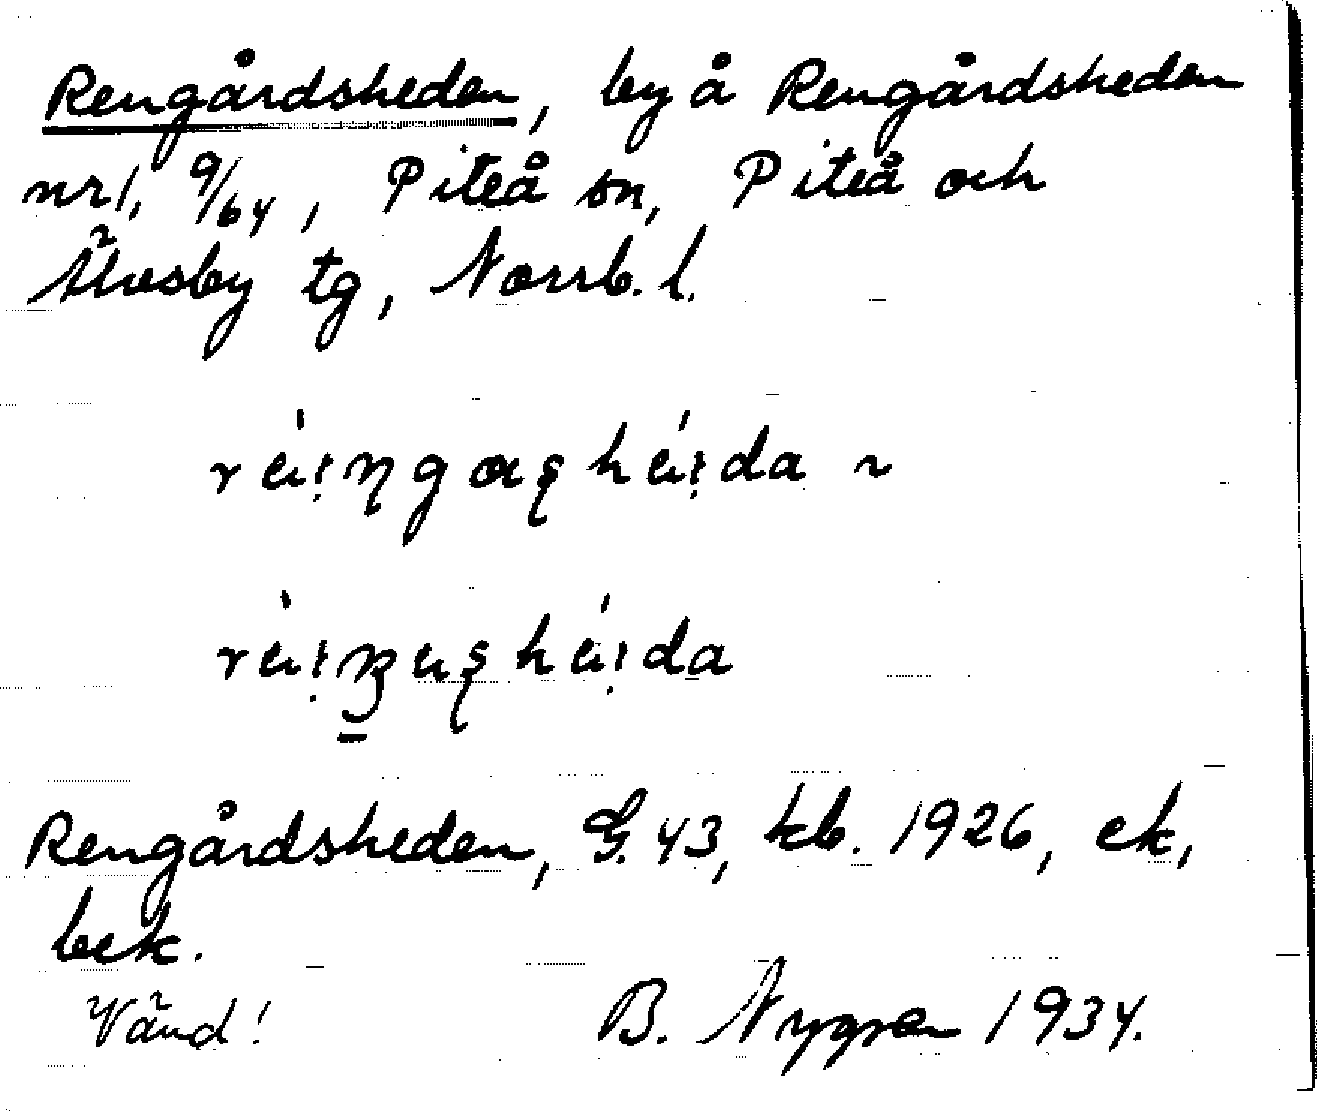 Rengårdsheden, by å Rengårdsheden
nr 1, 9/64, Piteå sn, Piteå och
Älvsby tg, Norrb. l.
Rengårdsheden, G. 43, kb. 1926, ek,
bek.
Vänd! B. Nygren 1934.